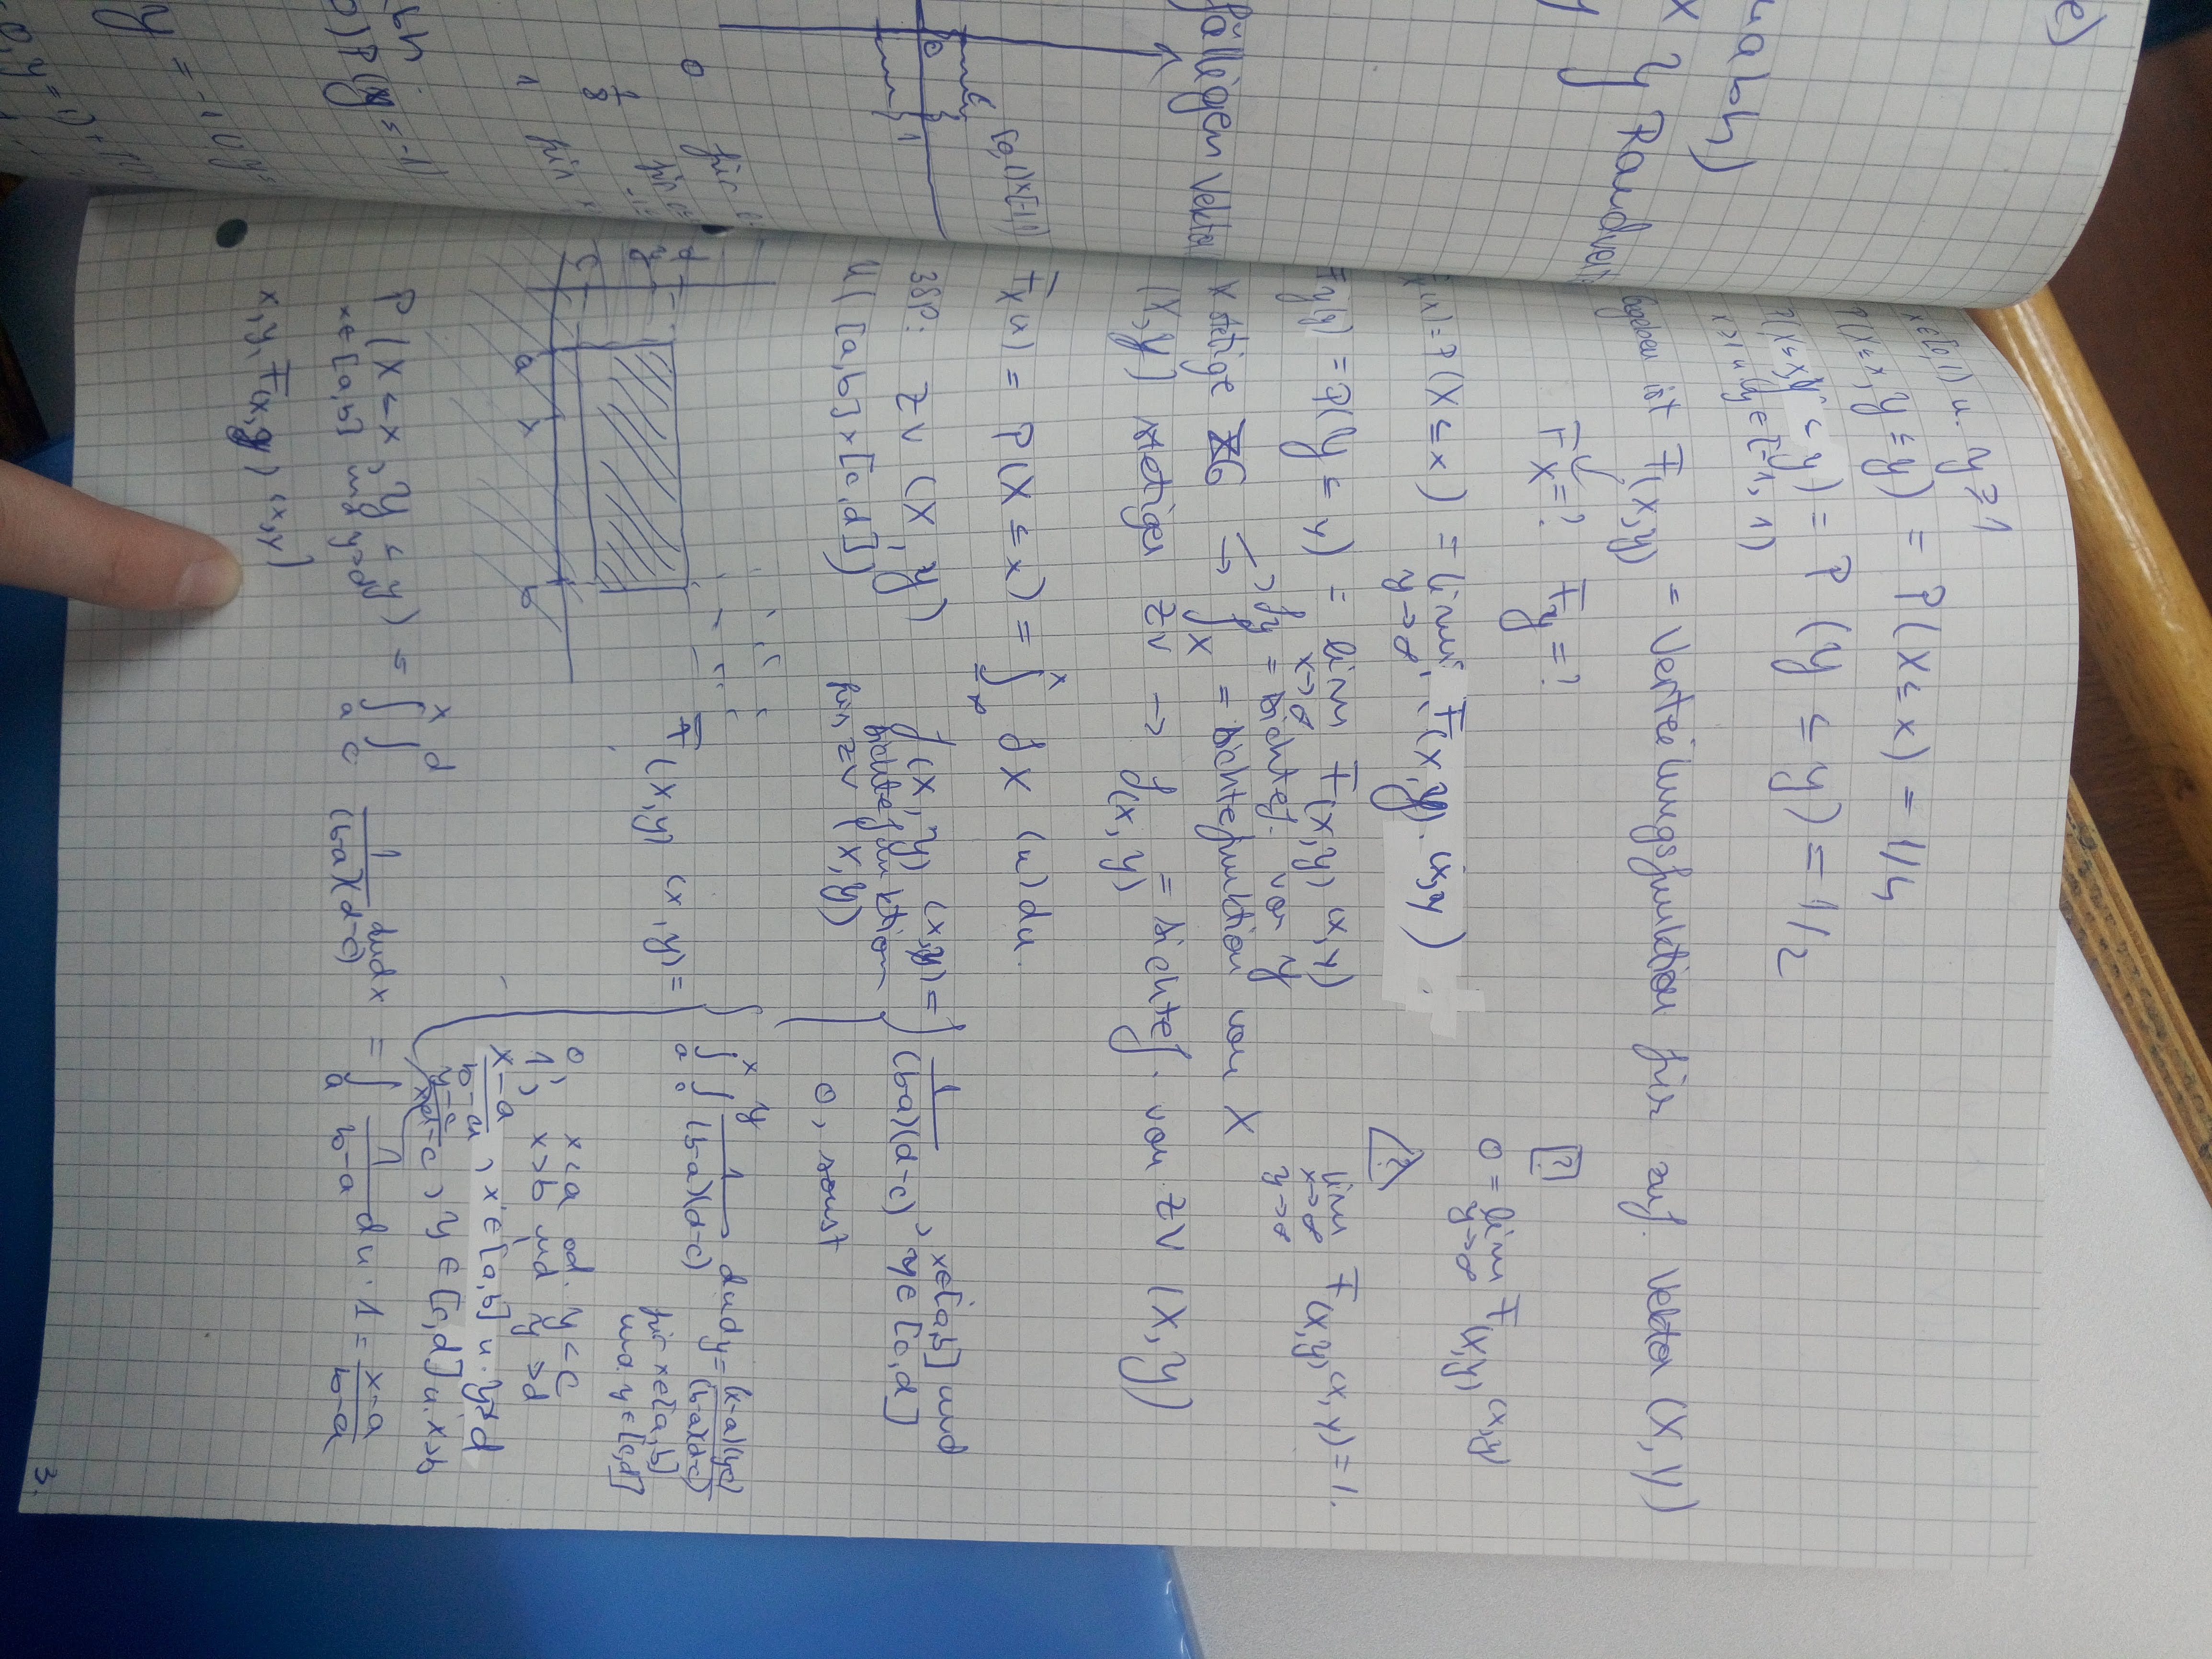 e)
uabh)
X Y Randvert
fälligen Vektor
[0,1)×[-1,1)
0
1
0 für
1/8 für
1 für
P(Y=-1)
x∈[0,1) u. y≥1
P(X≤x, Y≤y) = P(X≤x) = 1/4
P(X≤x, Y≤y) = P(Y≤y) = 1/2
x>1 u. y∈[-1, 1)
Gegeben ist F(X,Y) = Verteilungsfunktion für zuf. Vektor (X,Y)
FX=? FY=?
?
0 = lim y→∞ F(X,Y) (x,y)
FX(x)=P(X≤x) = lim y→∞ F(X,Y) (x,y)
?
FY(y) = P(Y≤y) = lim x→∞ F(X,Y) (x,y)
lim x→∞ y→∞ F(X,Y) (x,y)=1.
→ fY = Dichtef. von Y
X stetige ZG → fX = Dichtefunktion von X
(X,Y) stetiger ZV → f(X,Y) = Dichtef. von ZV (X,Y)
FX(x) = P(X≤x) = ∫ -∞ x fX (u) du.
BSP: ZV (X,Y) f(X,Y) (x,y) = { 1/(b-a)(d-c), x∈[a,b] und y∈[c,d]
Dichtefunktion
U([a,b]×[c,d]) für ZV (X,Y)
0, sonst
d
y
c
a x b
F(X,Y) (x,y) = { ∫ a x ∫ c y 1/(b-a)(d-c) dudy = (x-a)(y-c)/(b-a)(d-c)
für x∈[a,b]
und y∈[c,d]
0, x<a od. y<c
1, x>b und y>d
x-a/b-a, x∈[a,b] u. y>d
y-c/d-c, y∈[c,d] u. x>b
P(X≤x, Y≤y) = ∫ a x ∫ c d 1/(b-a)(d-c) dudx = ∫ a x 1/b-a du·1 = x-a/b-a
x∈[a,b] und y>d
x, y, F(X,Y) (x,y)
3.